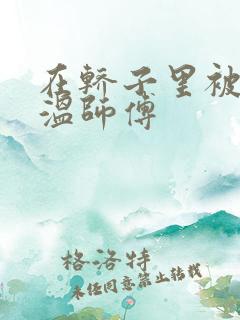 在轿子里被
温师傅
格洛特
未经同意禁止转载